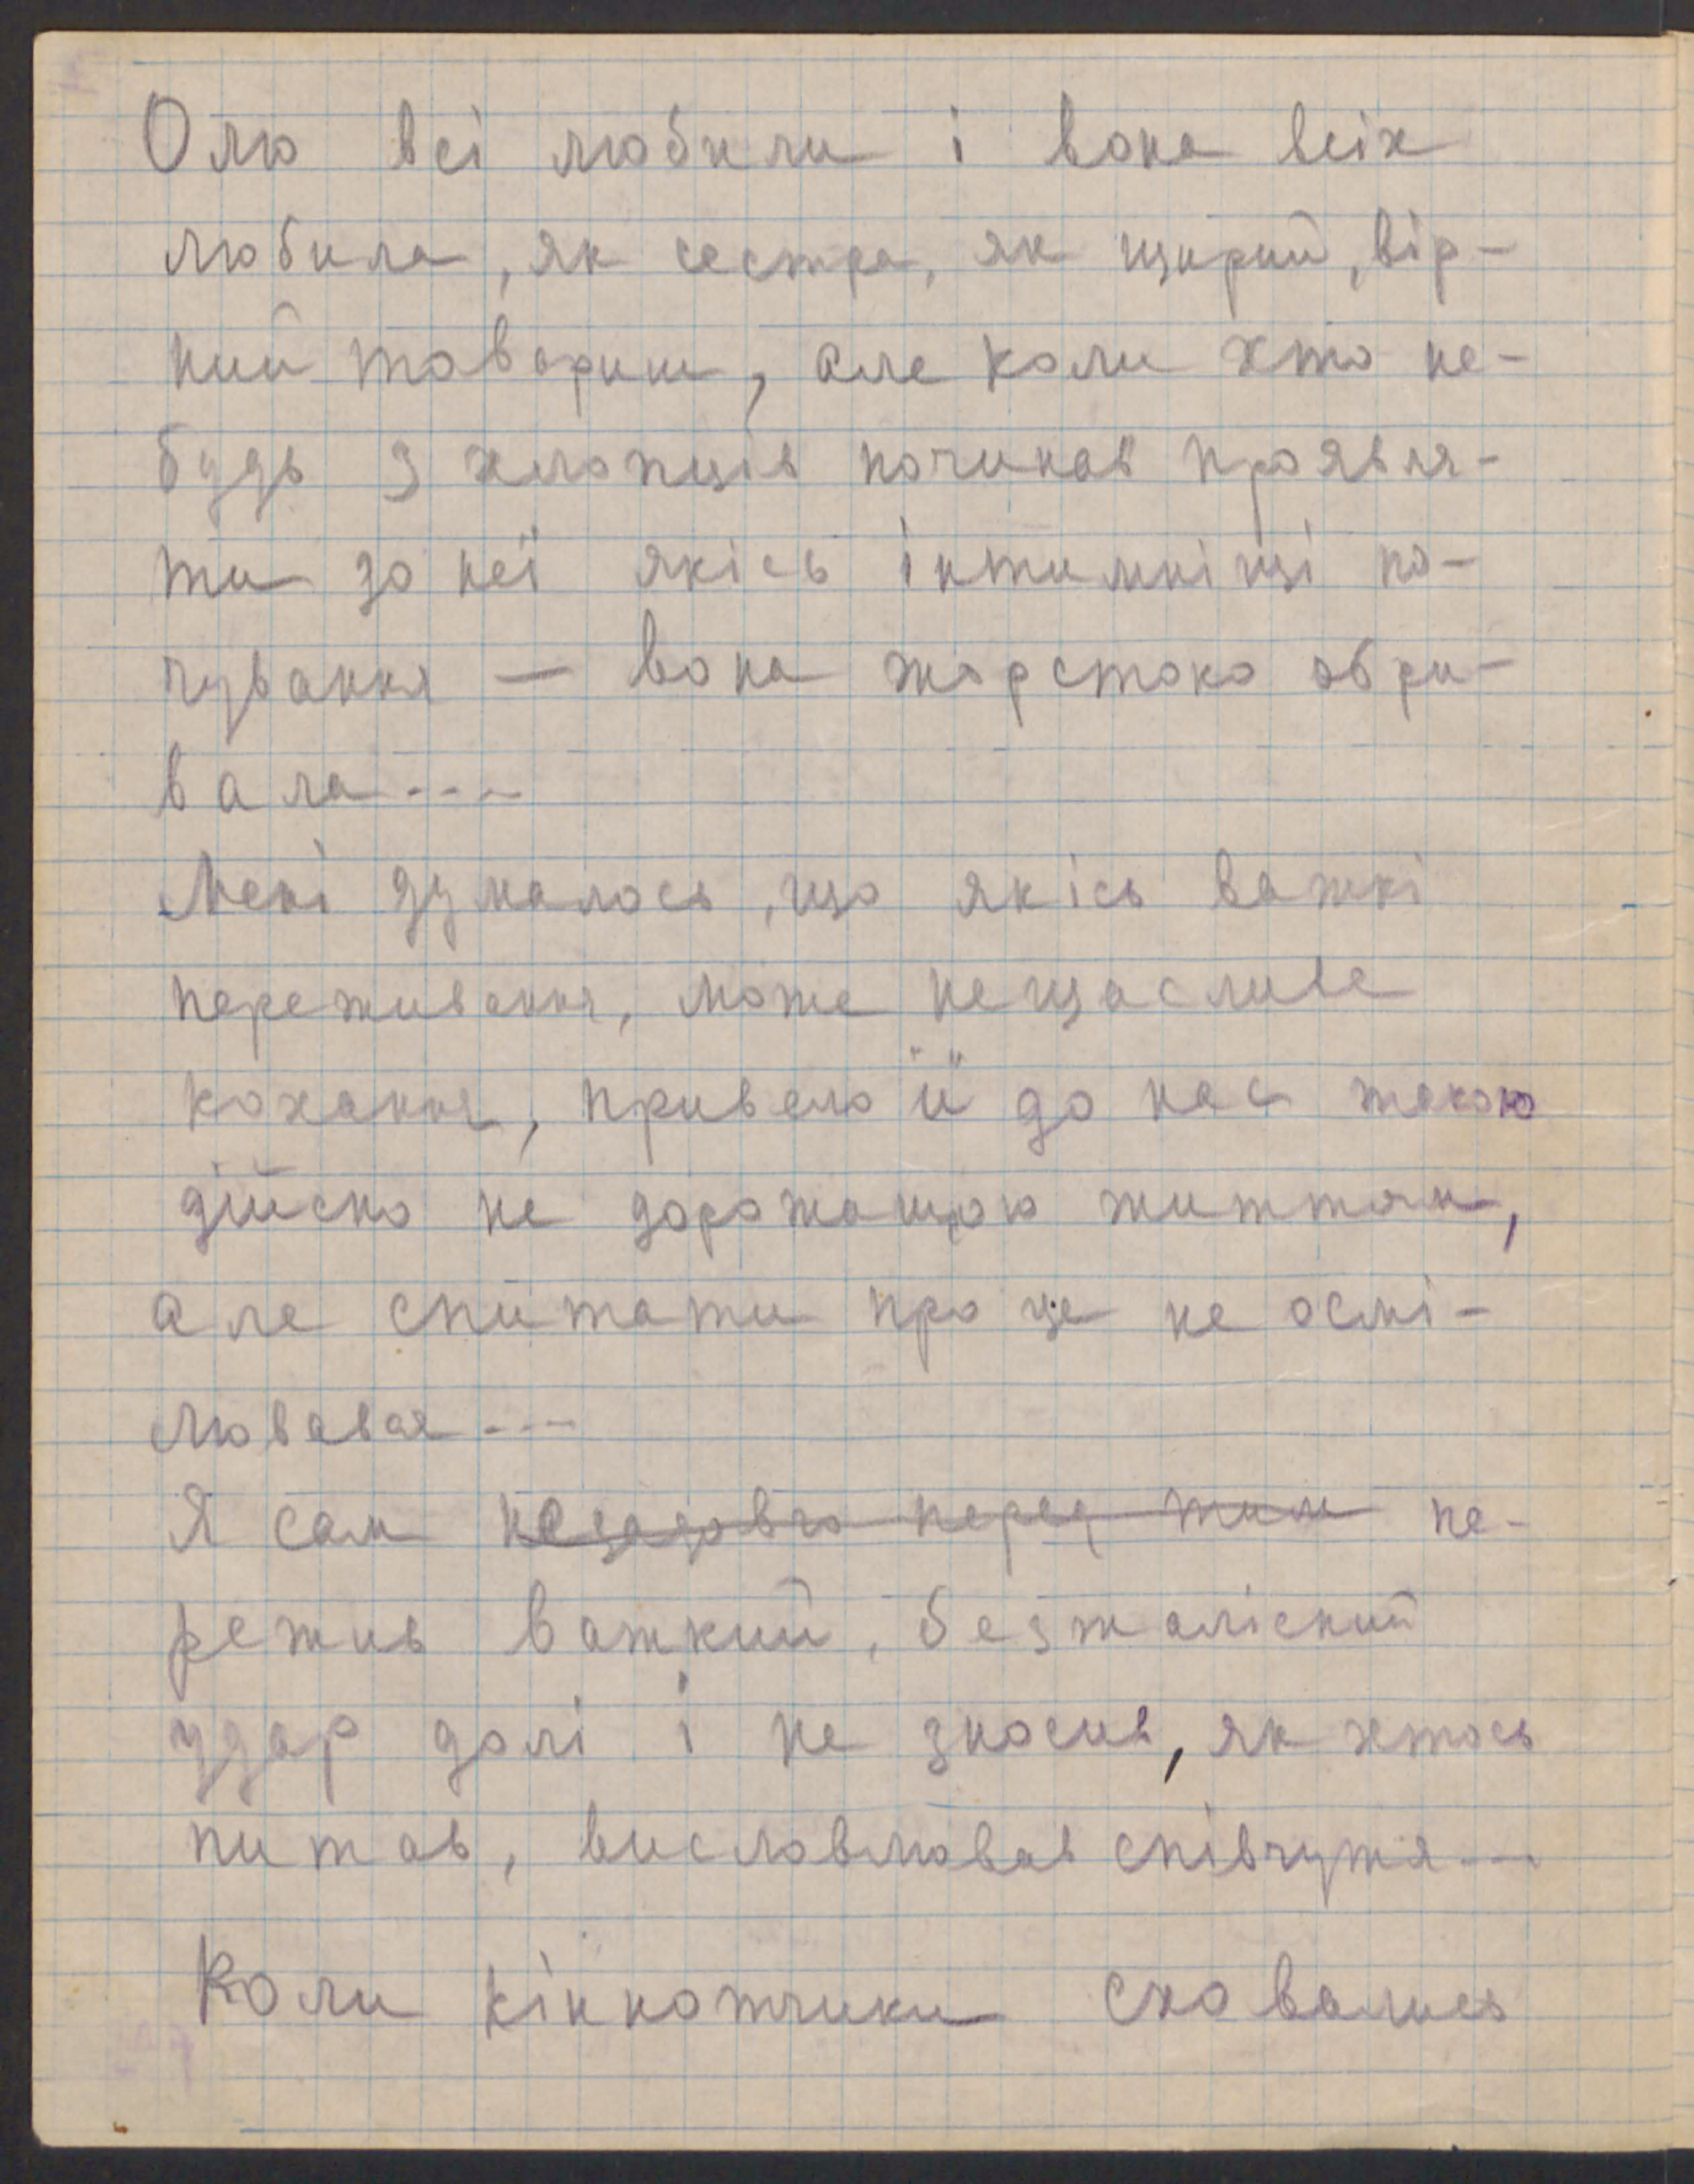 Олю всі любили і вона всіх
любила, як сестра, як щирий, вір-
ний товариш, але коли хто не-
будь з хлопців починав проявля-
ти до неї якісь інтимніщі по-
чування — вона жорстоко обри-
вала ---
Мені думалось, що якісь важкі
переживання, може нещасливе
кохання, привело її до нас такою
дійсно не дорожащою життям,
але спитати про це не осмі-
лювався ---
Я сам незадовго перед тим пе-
режив важкий, безжалісний
удар долі і не зносив, як хтось
питав, висловлював співчуття ---
Коли кіннотчики сховались